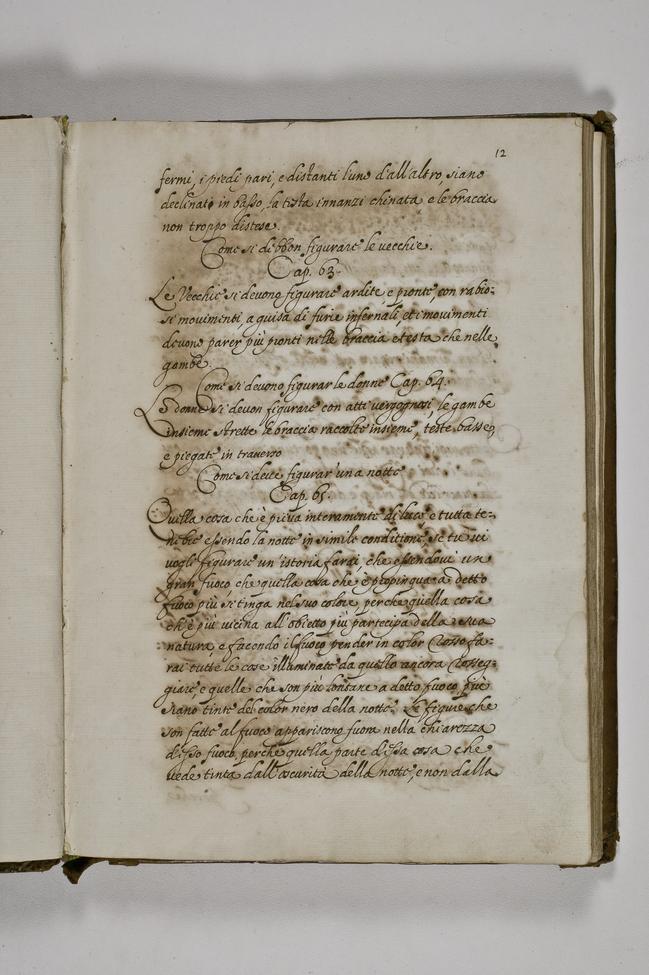 12
fermi, i piedi pari, e distanti l'uno d'all'altro, siano
declinati in basso, la testa innanzi chinata e le braccia
non troppo distese.
Come si debbon figurare le vecchie.
Cap. 63.
Le Vecchie si devono figurare ardite e pronte, con rabio=
si movimenti, a guisa di furie infernali, et i movimenti
devono parer più pronti nelle braccia e testa che nelle
gambe.
Come si devono figurar le donne Cap. 64.
Le donne si devon figurare con atti vergognosi, le gambe
insieme strette, le braccia raccolte insieme, teste basse,
e piegate in traverso
Come si deve figurar una notte
Cap. 65.
Quella cosa che è priva interamente di luce e tutta te=
nebre essendo la notte in simile conditione, se tu vi
vogli figurare un'istoria farai, che essendovi un
gran fuoco, che quella cosa che è propinqua a detto
fuoco più si tinga nel suo colore, perche quella cosa
ch'è più vicina all'obietto più partecipa della sua
natura, e facendo il fuoco pender in color Rosso fa=
rai tutte le cose illuminate da quello ancora Rosseg=
giare, e quelle che son più lontane a detto fuoco più
siano tinte del color nero della notte. Le figure che
son fatte al fuoco appariscono fuora nella chiarezza
d'esso fuoco, perche quella parte d'essa cosa che
vede tinta dall'oscurità della notte, e non dalla